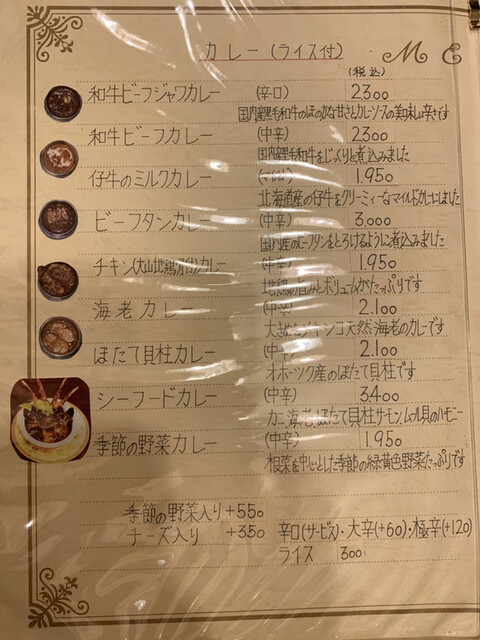 カレー(ライス付)
M E
(税込)
和牛ビーフジャワカレー (辛口) 2300
国内産黒毛和牛のほのかな甘さとカレーソースの美味しい辛さです
和牛ビーフカレー (中辛) 2300
国内産黒毛和牛をじっくりと煮込みました
仔牛のミルクカレー (マイルド) 1.950
北海道産の仔牛をクリーミィーなマイルドカレーにしました
ビーフタンカレー (中辛) 3,000
国内産のビーフタンをとろけるように煮込みました
チキン(大山地鶏 カレー (中辛) 1.950
地鶏の旨みとボリュームがたっぷりです
海老カレー (中辛) 2.100
天然海老のカレーです
ほたて貝柱カレー (中辛) 2.100
オホーツク産のほたて貝柱です
シーフードカレー (中辛) 3.400
カニ、海老、ほたて貝柱、サーモン、ムール貝のハーモニー
季節の野菜カレー (中辛) 1.950
根菜を中心とした季節の緑黄色野菜たっぷりです
季節の野菜入り +550
チーズ入り +350
辛口(サービス)・大辛(+60)・極辛(+120)
ライス 300